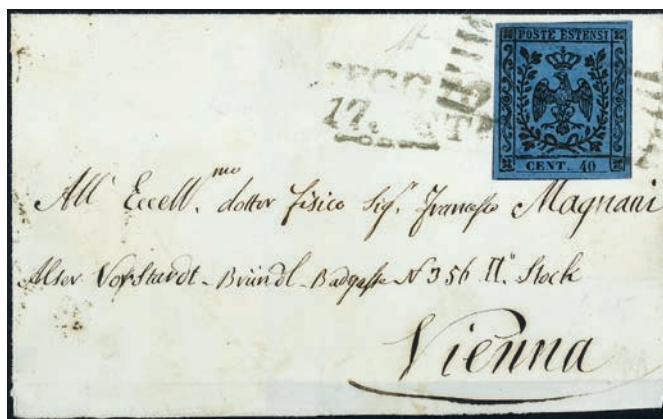 POSTE ESTENSI
CENT. 40
REGGIO
17.
All' Eccell.mo dottor fisico Sig.r Francesco Magnani
Alser Vorstardt - Bründl - Badgasse N 356 II.° Stock
Vienna